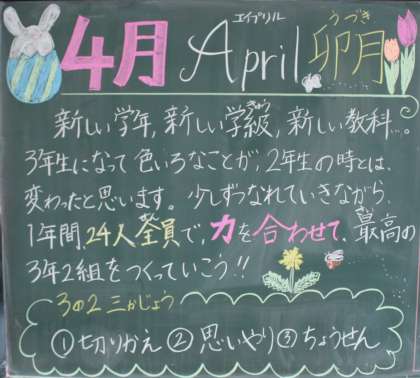 エイプリル うづき
4月 April 卯月
新しい学年，新しい学級，新しい教科…。
きゅう
3年生になって色いろなことが，2年生の時とは，
変わったと思います。少しずつなれていきながら，
1年間，24人全員で，力を合わせて，最高の
3年2組をつくっていこう!!
3の2 三かじょう
①切りかえ ②思いやり ③ちょうせん